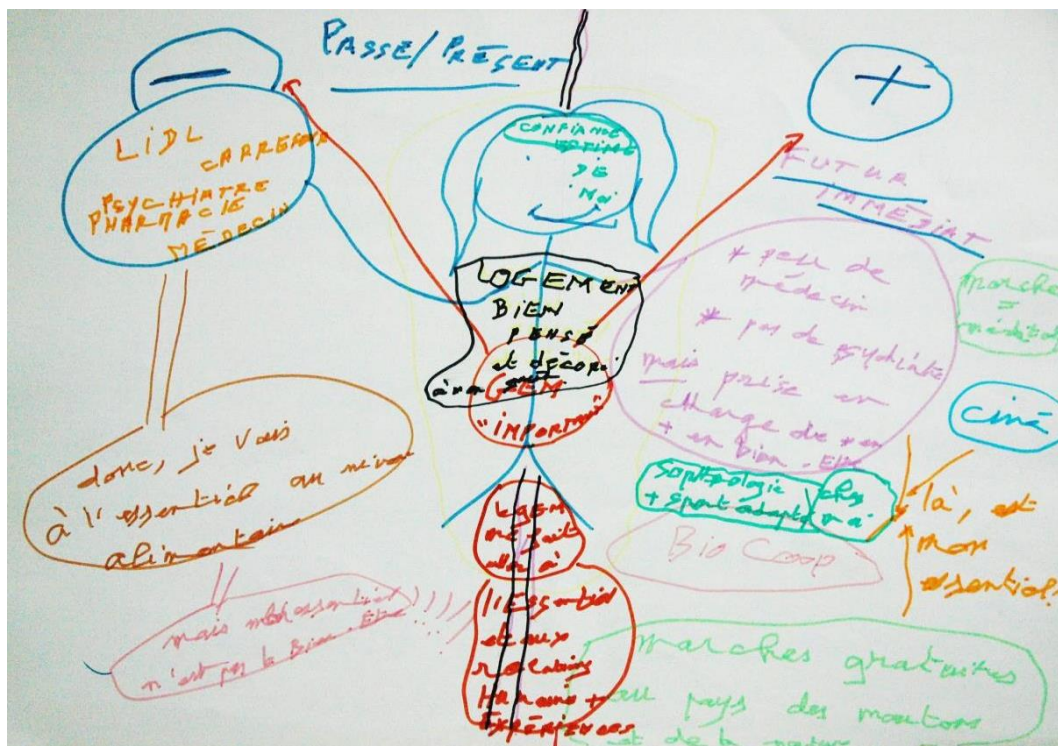 PASSE/PRÉSENT
−
LIDL
CARREFOUR
PSYCHIATRE
PHARMACIE
MÉDECIN
donc, je vais
à l'essentiel au niveau
alimentaire
mais
essentiel
n'est pas le Bien-Etre
CONFIANCE
ESTIME
DE
MOI
LOGEMENT
BIEN
PENSÉ
et décoré
à mon goût
GEM
"IMPORTANT"
LGEM
me fait
aller à
l'Essentiel
et aux
relations
Humaines +
EXPÉRIENCES
+
FUTUR
IMMÉDIAT
* peu de
médecin
* pas de psychiatre
mais prise en
charge de + en
+ en Bien-Etre
marche
=
ciné
sophrologie
+ sport adapté
Bio Coop
là, est
mon
essentiel.
marches gratuites
au pays des moutons
et de la nature